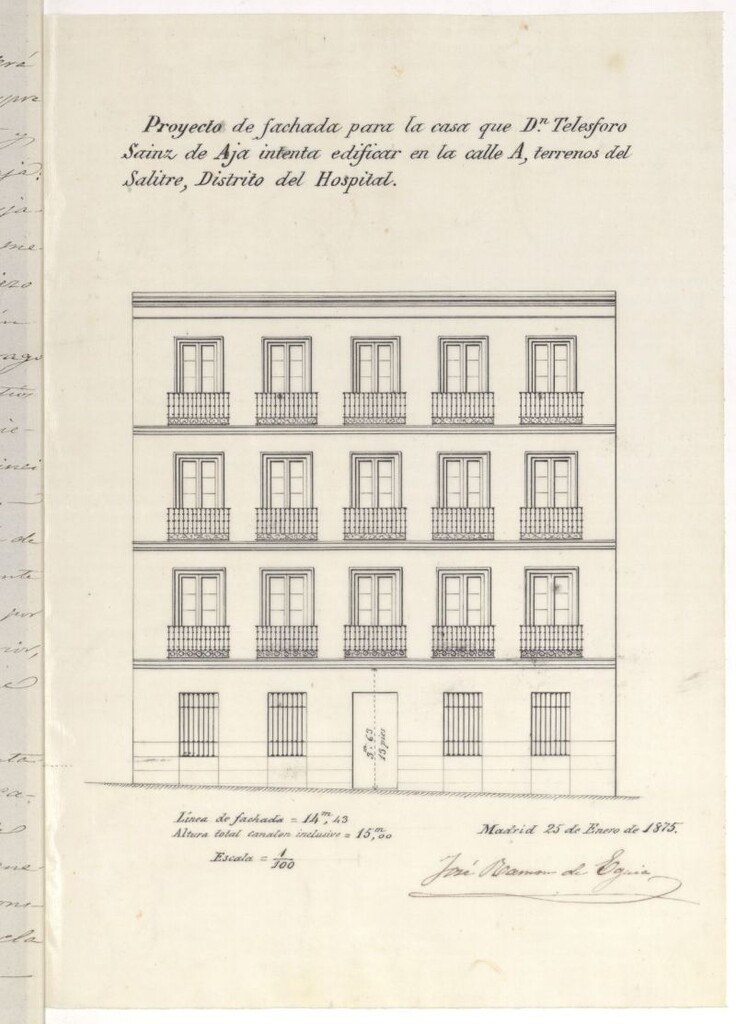 Proyecto de fachada para la casa que D.ⁿ Telesforo
Sainz de Aja intenta edificar en la calle A, terrenos del
Salitre, Distrito del Hospital.
13 pies
Linea de fachada = 14ᵐ,43
Altura total canalon inclusive = 15,ᵐ00
Escala = 1/100
Madrid 25 de Enero de 1875.
José Ramon de Eguia